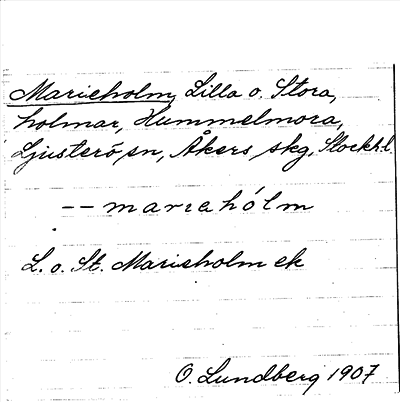 Marieholm, Lilla o. Stora,
holmar, Hummelmora,
Ljusterö sn, Åkers skg, Stockh.l.
-- marıahólm
L. o. St. Marieholm ek
O. Lundberg 1907